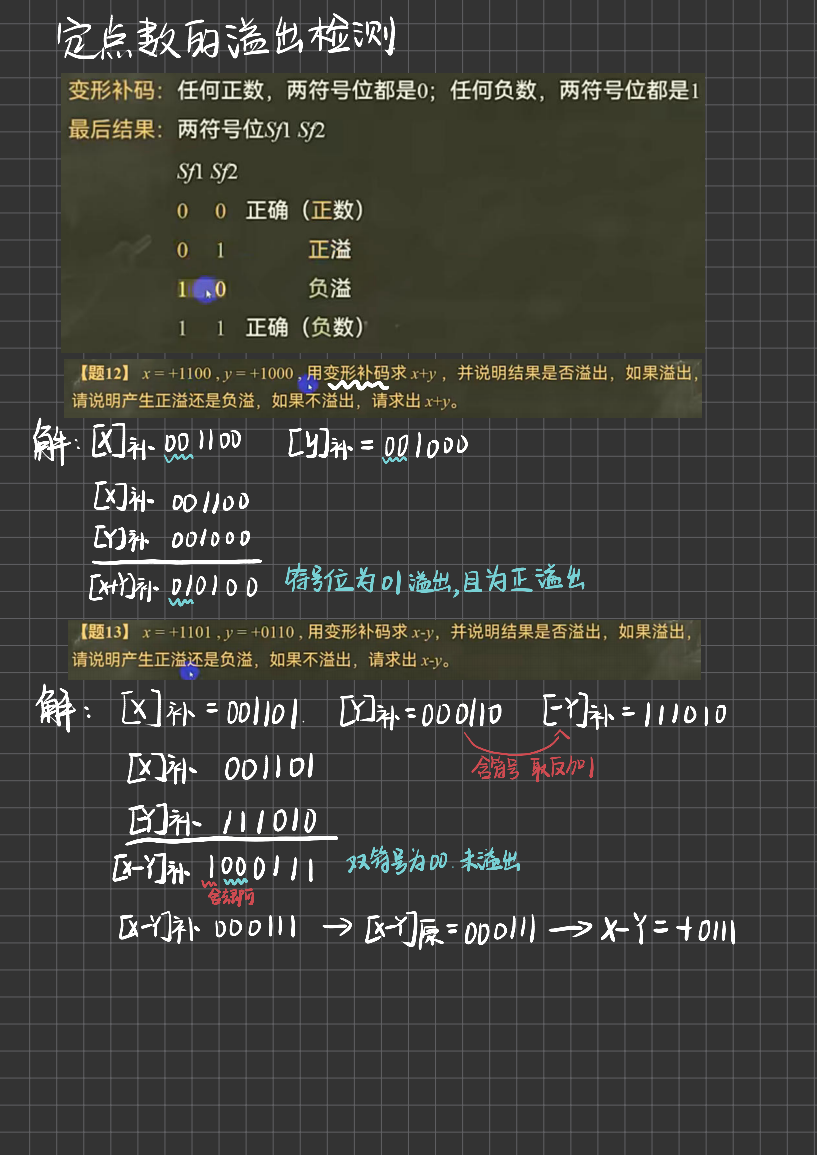 定点数的溢出检测
变形补码：任何正数，两符号位都是0；任何负数，两符号位都是1
最后结果：两符号位Sf1 Sf2
Sf1 Sf2
0 0 正确（正数）
0 1 正溢
1 0 负溢
1 1 正确（负数）
【题12】 x = +1100 , y = +1000 , 用变形补码求 x+y ，并说明结果是否溢出，如果溢出，
请说明产生正溢还是负溢，如果不溢出，请求出 x+y。
解：[X]补 001100 [y]补 = 001000
[X]补 001100
[Y]补 001000
[x+Y]补 010100 符号位为01溢出,且为正溢出
【题13】 x = +1101 , y = +0110 , 用变形补码求 x-y，并说明结果是否溢出，如果溢出，
请说明产生正溢还是负溢，如果不溢出，请求出 x-y。
解：[X]补 = 001101. [Y]补 = 000110 [-Y]补 = 111010
含符号 取反加1
[X]补 001101
[Y]补 111010
[X-Y]补 1000111 双符号为00.未溢出
[X-Y]补 000111 → [X-Y]原 = 000111 → X-Y = +0111